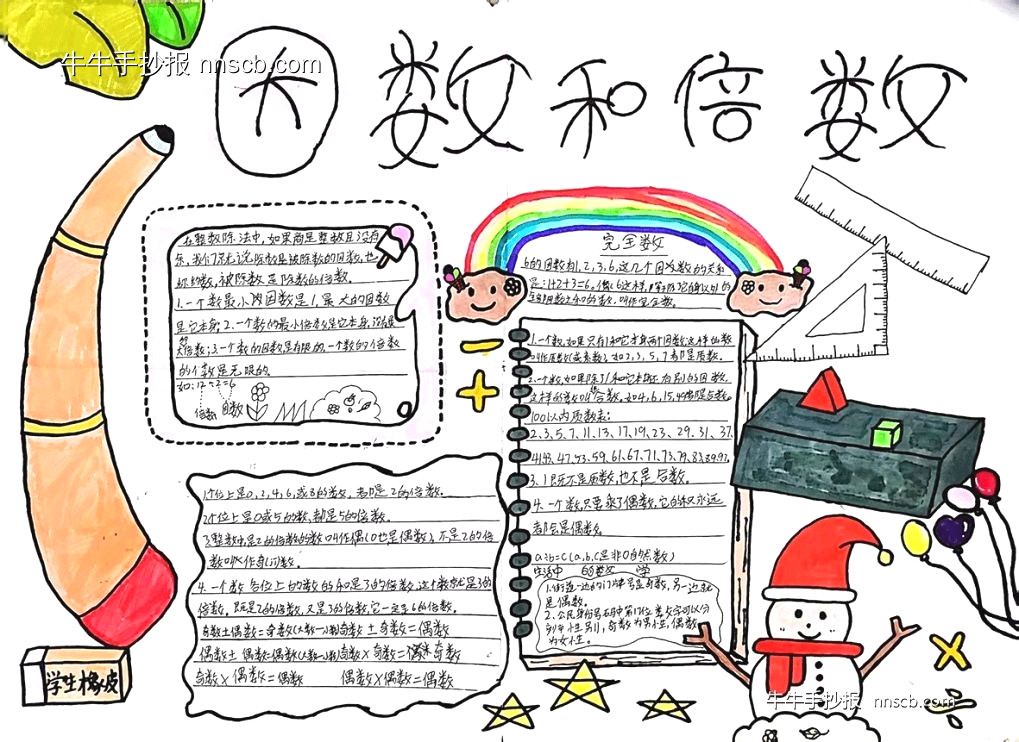 牛牛手抄报 nnscb.com
因数和倍数
在整数除法中，如果商是整数且没有
余，我们就说除数是被除数的因数，也
称约数，被除数是除数的倍数。
1.一个数最小的因数是1，最大的因数
是它本身；2.一个数的最小倍数是它本身，没有最
大倍数；3.一个数的因数是有限的，一个数的倍数
的个数是无限的。
如：12÷2=6
倍数 因数
完全数
6的因数有1,2,3,6,这几个因数的关系
是：1+2+3=6。像6这样，
叫作完全数。
1.一个数，如果只有1和它本身两个因数，这样的数
叫作质数(或素数)，如2,3,5,7都是质数。
2.一个数，如果除了1和它本身还有别的因数，
这样的数叫合数，如4,6,15,49都是合数。
100以内质数表：
2.3.5.7.11.13.17.19.23.29.31.37.
41.43.47.53.59.61.67.71.73.79.83.89.97.
3.1既不是质数，也不是合数。
4.一个数，只要乘了偶数，它的积永远
都会是偶数。
a÷b=c(a,b,c是非0自然数)
生活中的数学
1.街道一边的门牌号是奇数，另一边就
是偶数。
2.公民身份号码中第17位数字可以分
别性别，奇数为男性，偶数
为女性。
1个位上是0,2,4,6,或8的数，都是2的倍数。
2个位上是0或5的数，都是5的倍数。
3整数中，是2的倍数的数叫作偶(0也是偶数)，不是2的倍
数叫作奇数。
4.一个数各位上的数的和是3的倍数，这个数就是3的
倍数，既是2的倍数，又是3的倍数，它一定是6的倍数。
奇数±偶数=奇数(大数-小数)奇数±奇数=偶数
偶数±偶数=偶数(大数-小数)奇数×奇数=奇数
奇数×偶数=偶数 偶数×偶数=偶数
学生橡皮
牛牛手抄报 nnscb.com